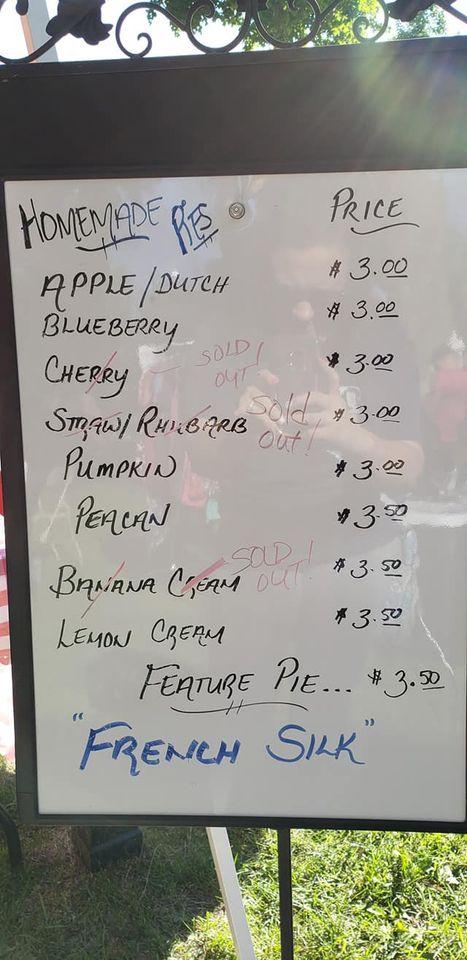 HOMEMADE PIES PRICE
APPLE/DUTCH $3.00
BLUEBERRY $3.00
CHERRY - SOLD OUT! $3.00
STRAW/RHUBARB Sold Out! $3.00
PUMPKIN $3.00
PEACAN $3.50
BANANA CREAM SOLD OUT! $3.50
LEMON CREAM $3.50
FEATURE PIE... $3.50
"FRENCH SILK"